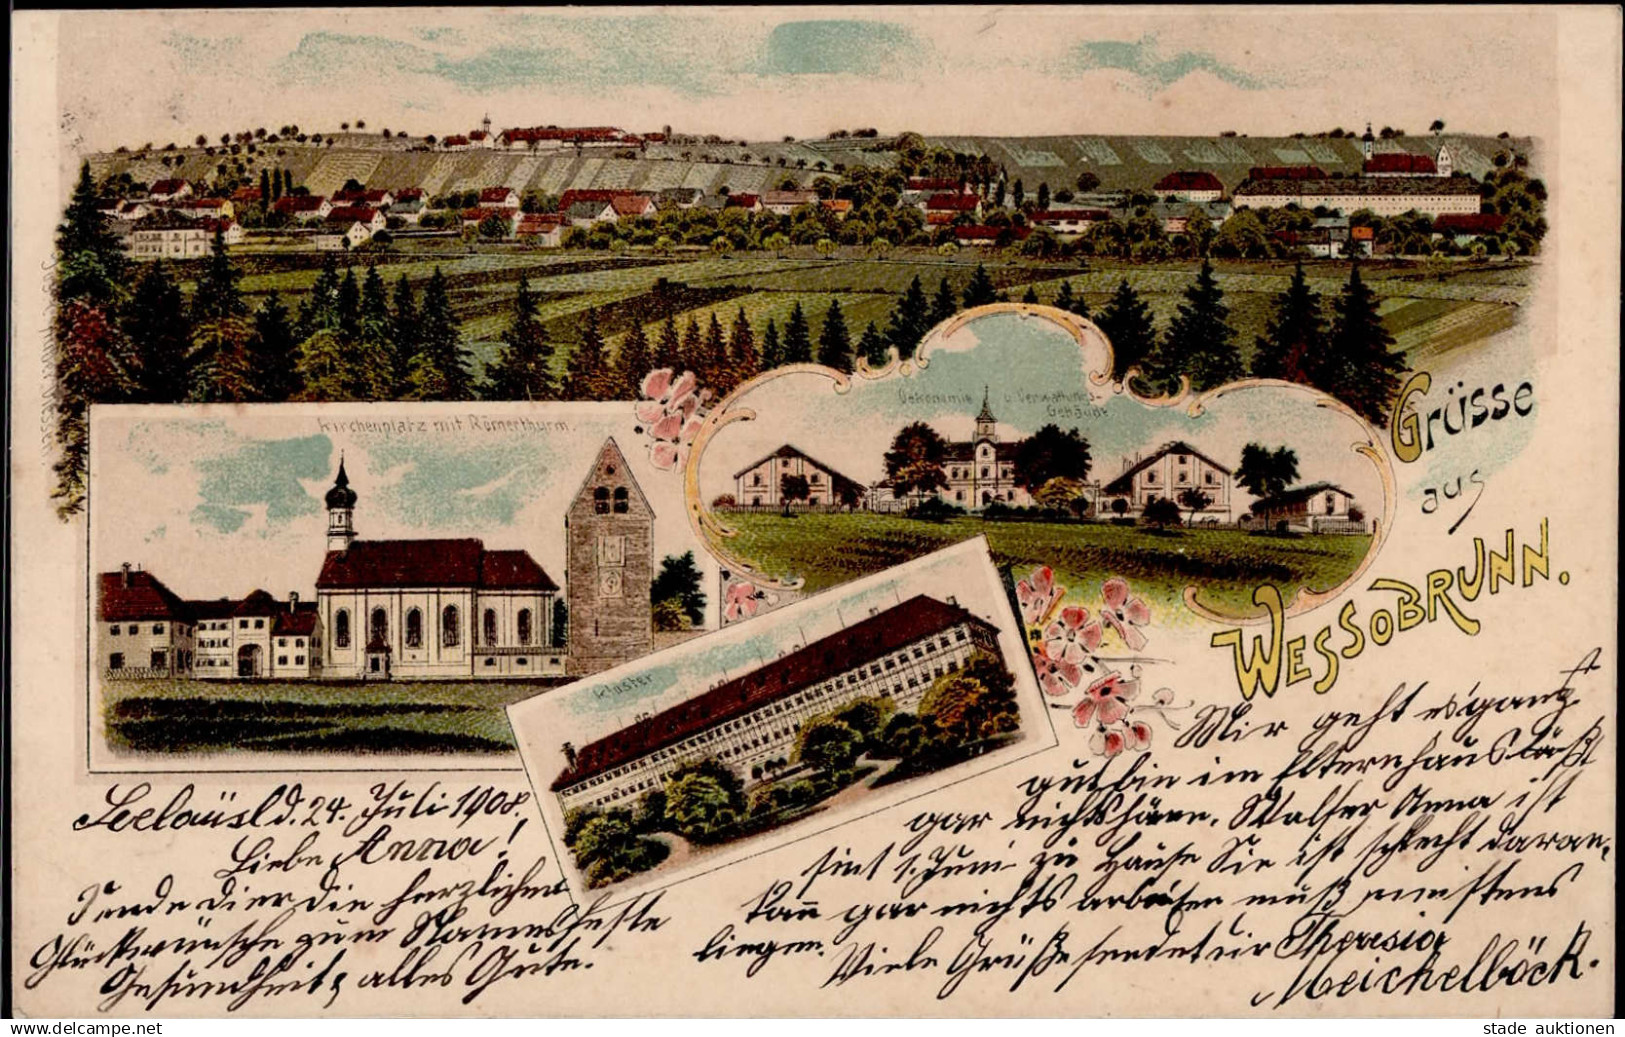 Kirchenplatz mit Römerthurm.
Oekonomie u. Verwaltungs-
Gebäude
Kloster
Grüsse
aus
WESSOBRUNN.
d. 24. Juli 1908.
Liebe Anna!
Sende dir die herzlichen
Glückwünsche zum Namensfeste
Gesundheit, alles Gute.
Mir geht es ganz
gut bin im Elternhaus
gar nichts Anna ist
seit 1. Juni zu Hause Sie ist schlecht daran,
kann gar nichts arbeiten muß meistens
liegen.
Viele Grüße sendet dir Theresia
Meichelböck.
stade auktionen
www.delcampe.net